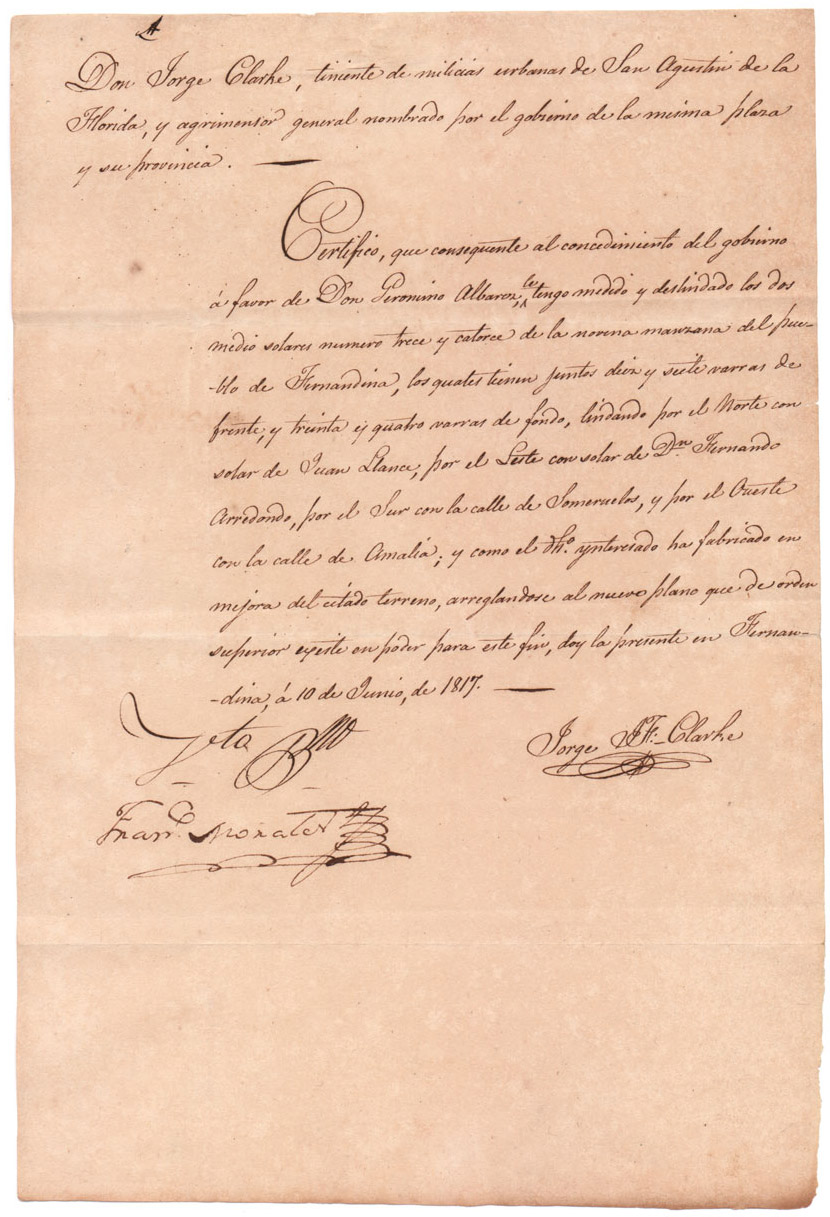 Don Jorge Clarke, teniente de milicias urbanas de San Agustin de la
Florida, y agrimensor general nombrado por el gobierno de la misma plaza
y su provincia. —
Certifico, que consequente al concedimiento del gobierno
á favor de Don Geronimo Albarez, le tengo medido y deslindado los dos
medio solares numero trece y catorce de la novena manzana del pue-
-blo de Fernandina, los quales tienen juntos diez y siete varras de
frente, y treinta y quatro varras de fondo, lindando por el Norte con
solar de Juan Llance, por el Leste con solar de Dn. Fernando
Arredondo, por el Sur con la calle de Someruelos, y por el Oueste
con la calle de Amalia; y como el dho. ynteresado ha fabricado en
mejora del citado terreno, arreglandose al nuevo plano que de orden
superior exiíste en poder para este fin, doy la presente en Fernan-
-dina, á 10 de Junio, de 1817. —
Jorge J. F. Clarke
Vto Bno
Franco. Morales